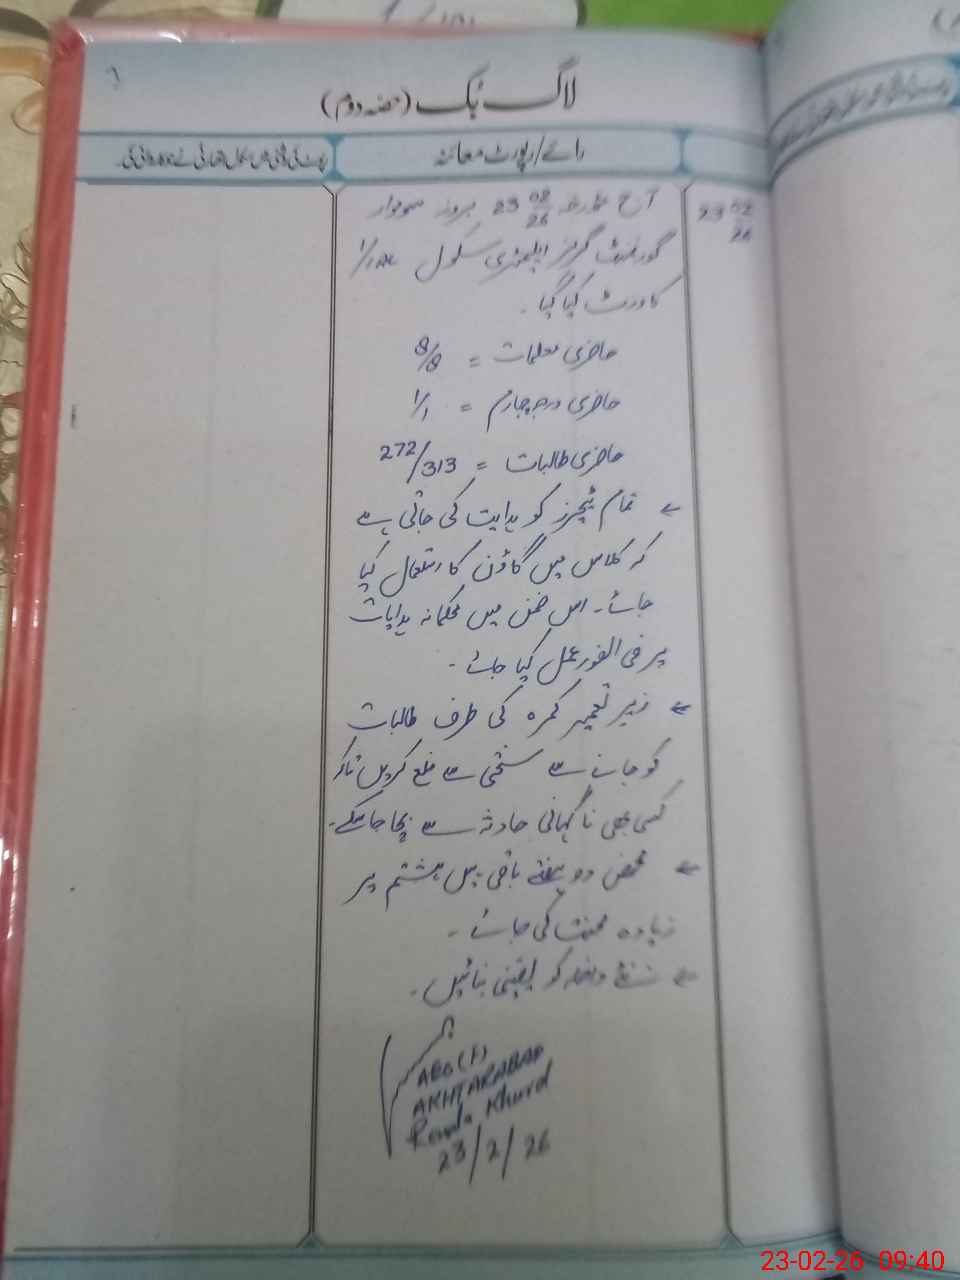 لاگ بک (حصہ دوم)
رائے/رپورٹ معائنہ
رپورٹ کی روشنی میں
23 02/26
آج مورخہ 23 02/26 بروز سوموار
گورنمنٹ گرلز ایلیمنٹری سکول 1/1AL
کا وزٹ کیا گیا۔
حاضری معلمات = 8/8
حاضری درجہ چہارم = 1/1
حاضری طالبات = 272/313
← تمام ٹیچرز کو ہدایت کی جاتی ہے
کہ کلاس میں گاؤن کا استعمال کیا
جائے۔ اس ضمن میں محکمانہ ہدایات
پر فی الفور عمل کیا جائے۔
← زیر تعمیر کمرہ کی طرف طالبات
کو جانے سے سختی سے منع کریں تاکہ
کسی بھی ناگہانی حادثہ سے بچا جا سکے۔
← محض دو ہفتے باقی ہیں ہشتم پر
زیادہ محنت کی جائے۔
← نئے داخلہ کو یقینی بنائیں۔
AEO (F)
AKHTARABAD
Renala Khurd
23/2/26
23-02-26 09:40